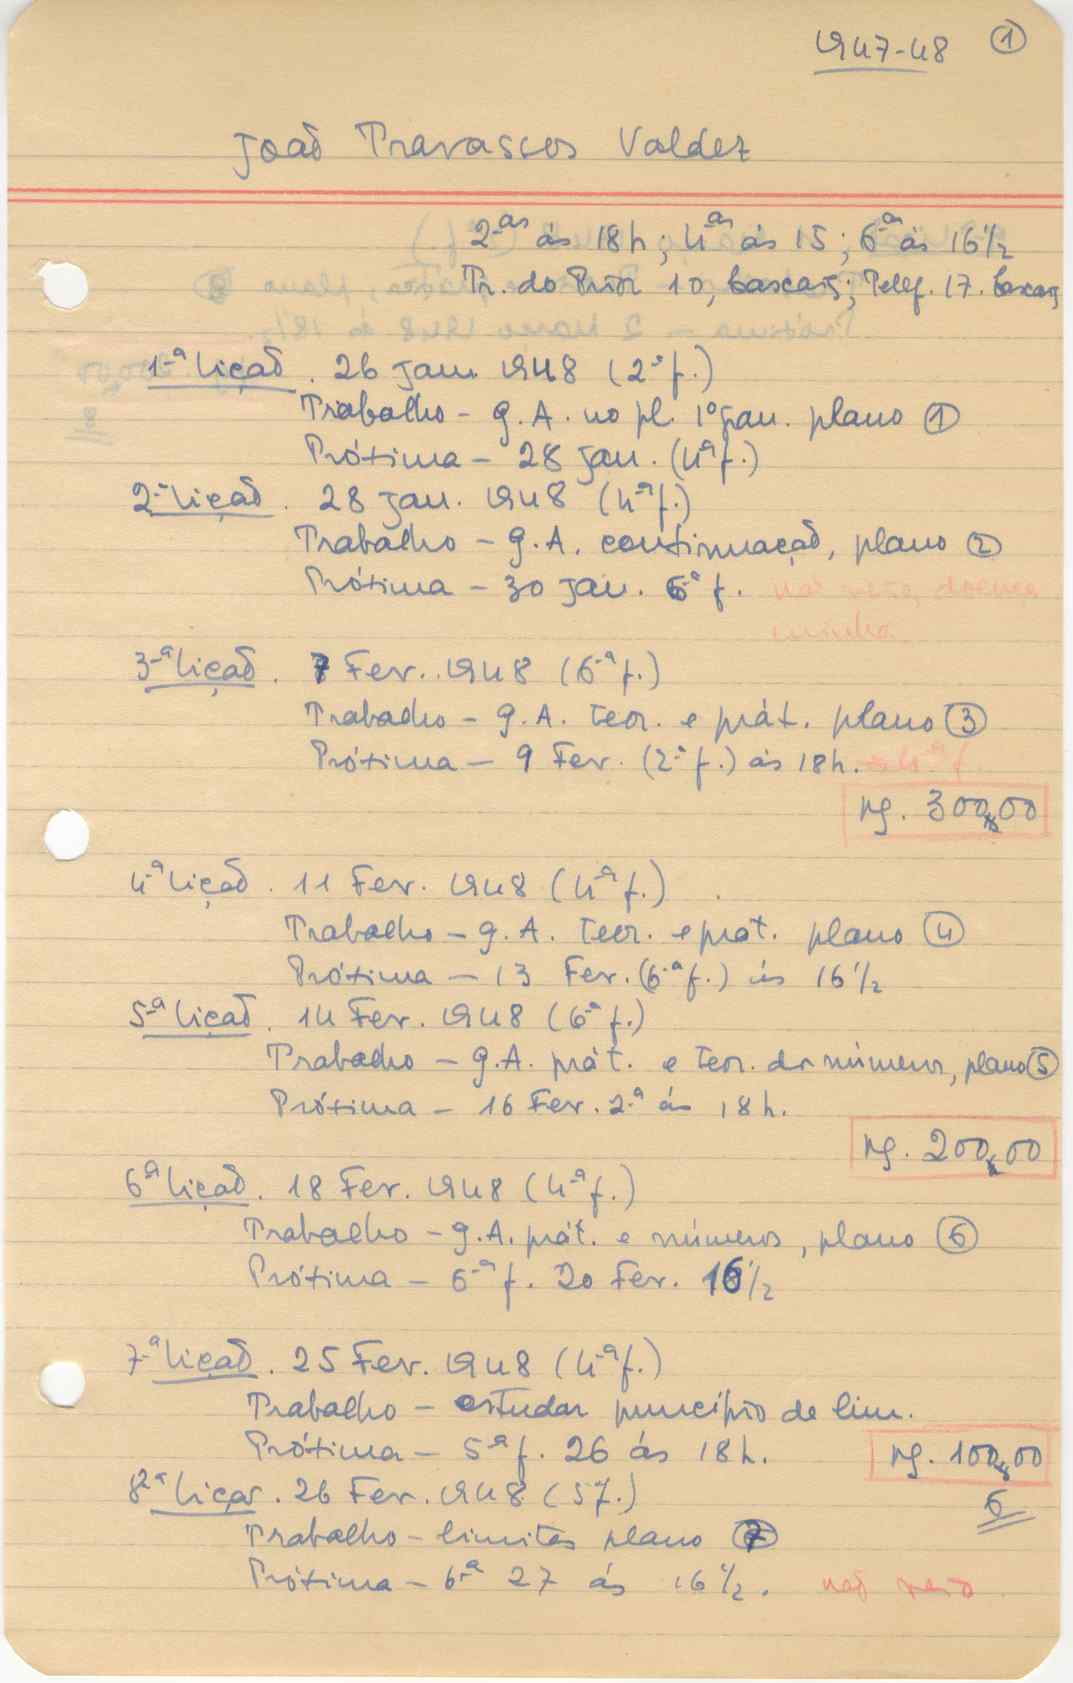 1947-48 ①
João Travascos Valdez
2-as ás 18h; 4as ás 15; 6-a ás 16½
Tr. do Prior 10, Cascais; Telef. 17. Cascais
1-a Lição. 26 jan. 1948 (2ª f.)
Trabalho - g. A. no pl. 1º gau. plano ①
Próxima - 28 jan. (4ª f.)
2-a Lição. 28 jan. 1948 (4-ª f.)
Trabalho - g. A. continuação, plano ②
Próxima - 30 jan. 6-ª f. não veio, doença
minha
3-ª Lição. 7 Fev. 1948 (6-ª f.)
Trabalho - g. A. teor. e prát. plano ③
Próxima - 9 Fev. (2-ª f.) ás 18h. 4-ª f.
pg. 300$00
4-ª Lição. 11 Fev. 1948 (4-ª f.)
Trabalho - g. A. teor. e prát. plano ④
Próxima - 13 Fev. (6-ª f.) ás 16½
5-ª Lição. 14 Fev. 1948 (6-ª f.)
Trabalho - g. A. prát. e teor. dos números, plano ⑤
Próxima - 16 Fev. 2.ª ás 18h.
pg. 200$00
6ª Lição. 18 Fev. 1948 (4-ª f.)
Trabalho - g. A. prát. e números, plano ⑥
Próxima - 6-ª f. 20 Fev. 16½
7-ª Lição. 25 Fev. 1948 (4-ª f.)
Trabalho - estudar princípio de lim.
Próxima - 5ª f. 26 ás 18h. pg. 100$00
8ª Lição. 26 Fev. 1948 (5 f.) 6
Trabalho - limites plano ⑦
Próxima - 6-ª 27 ás 16½. não veio